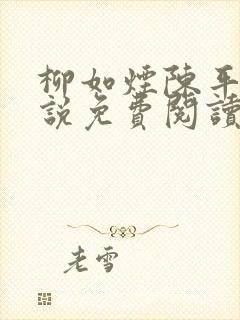 柳如煙陳平
說免費閱讀
老雪